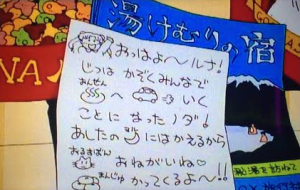 湯けむりの宿
NA
おっはよ〜ルナ!
じつは かぞくみんなで
おんせん
へ いく
ことに なったノダ!
あしたの にはかえるから
おるすばん
おねがいね♡
まんじゅう
かってくるよ〜!!
秘湯を訪ねて